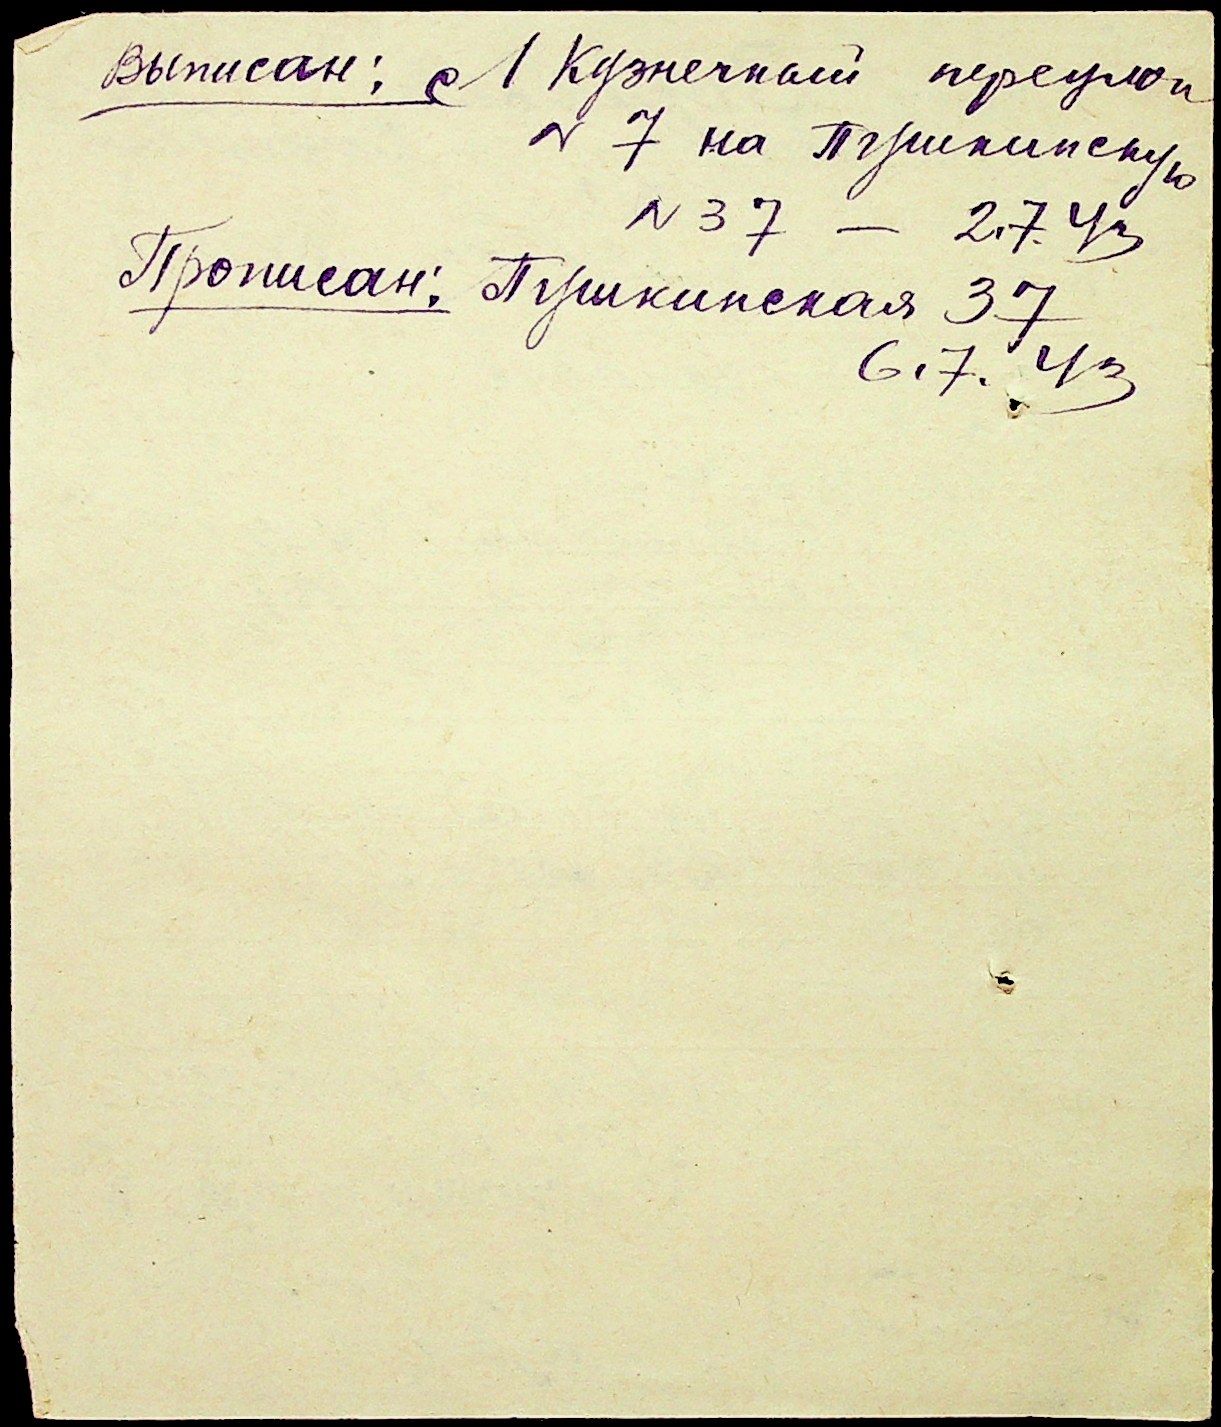 Выписан: с 1 Кузнечный переулок
N 7 на Пушкинскую
N 37 — 2.7.43
Прописан: Пушкинская 37
6.7.43